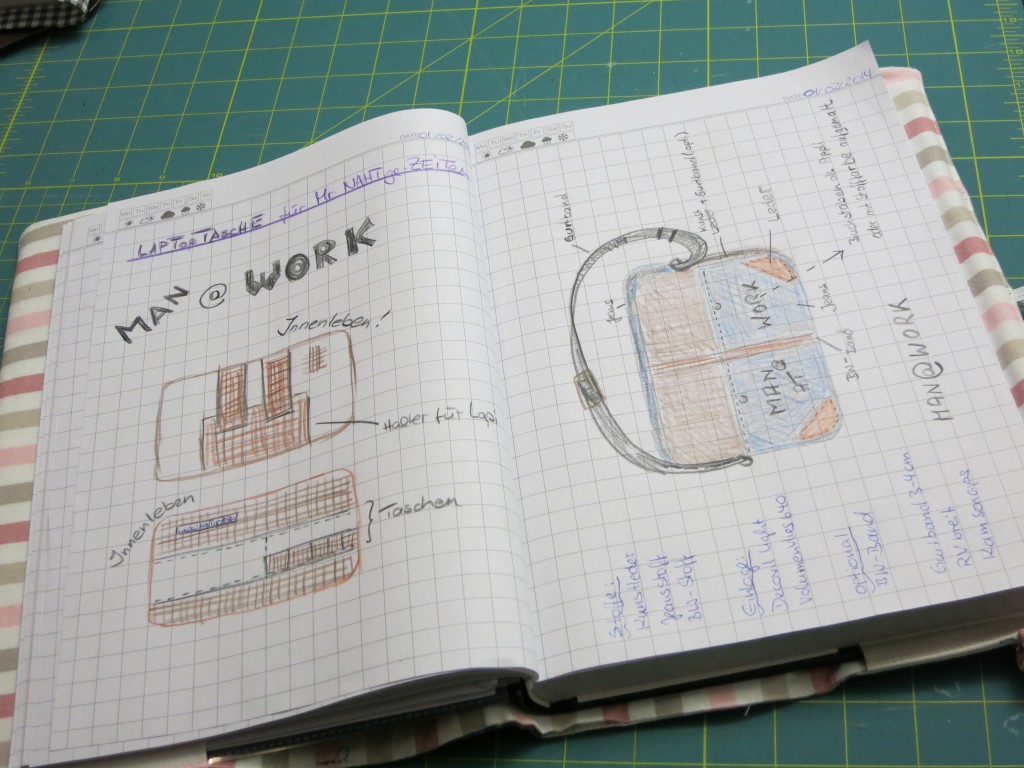 DATE 01.02.20
LAPTOPTASCHE für Mr NAHTge ZEITEN
MAN @ WORK
Innenleben!
Halter für Lapi
Innenleben
Taschen
DATE 01.02.2014
Gurtband
Leder
Jeans
MAN @ WORK
Jeans
BW-Band
Buchstaben als Appli
oder mit Stoffarbe aufgemalt
MAN@WORK
Stoffe:
Kunstleder
Jeansstoff
BW-Stoff
Einlage:
Decovil light
Volumenvlies 640
optional
BW-Band
Gurtband 3-4cm
RV breit
Kamsnaps